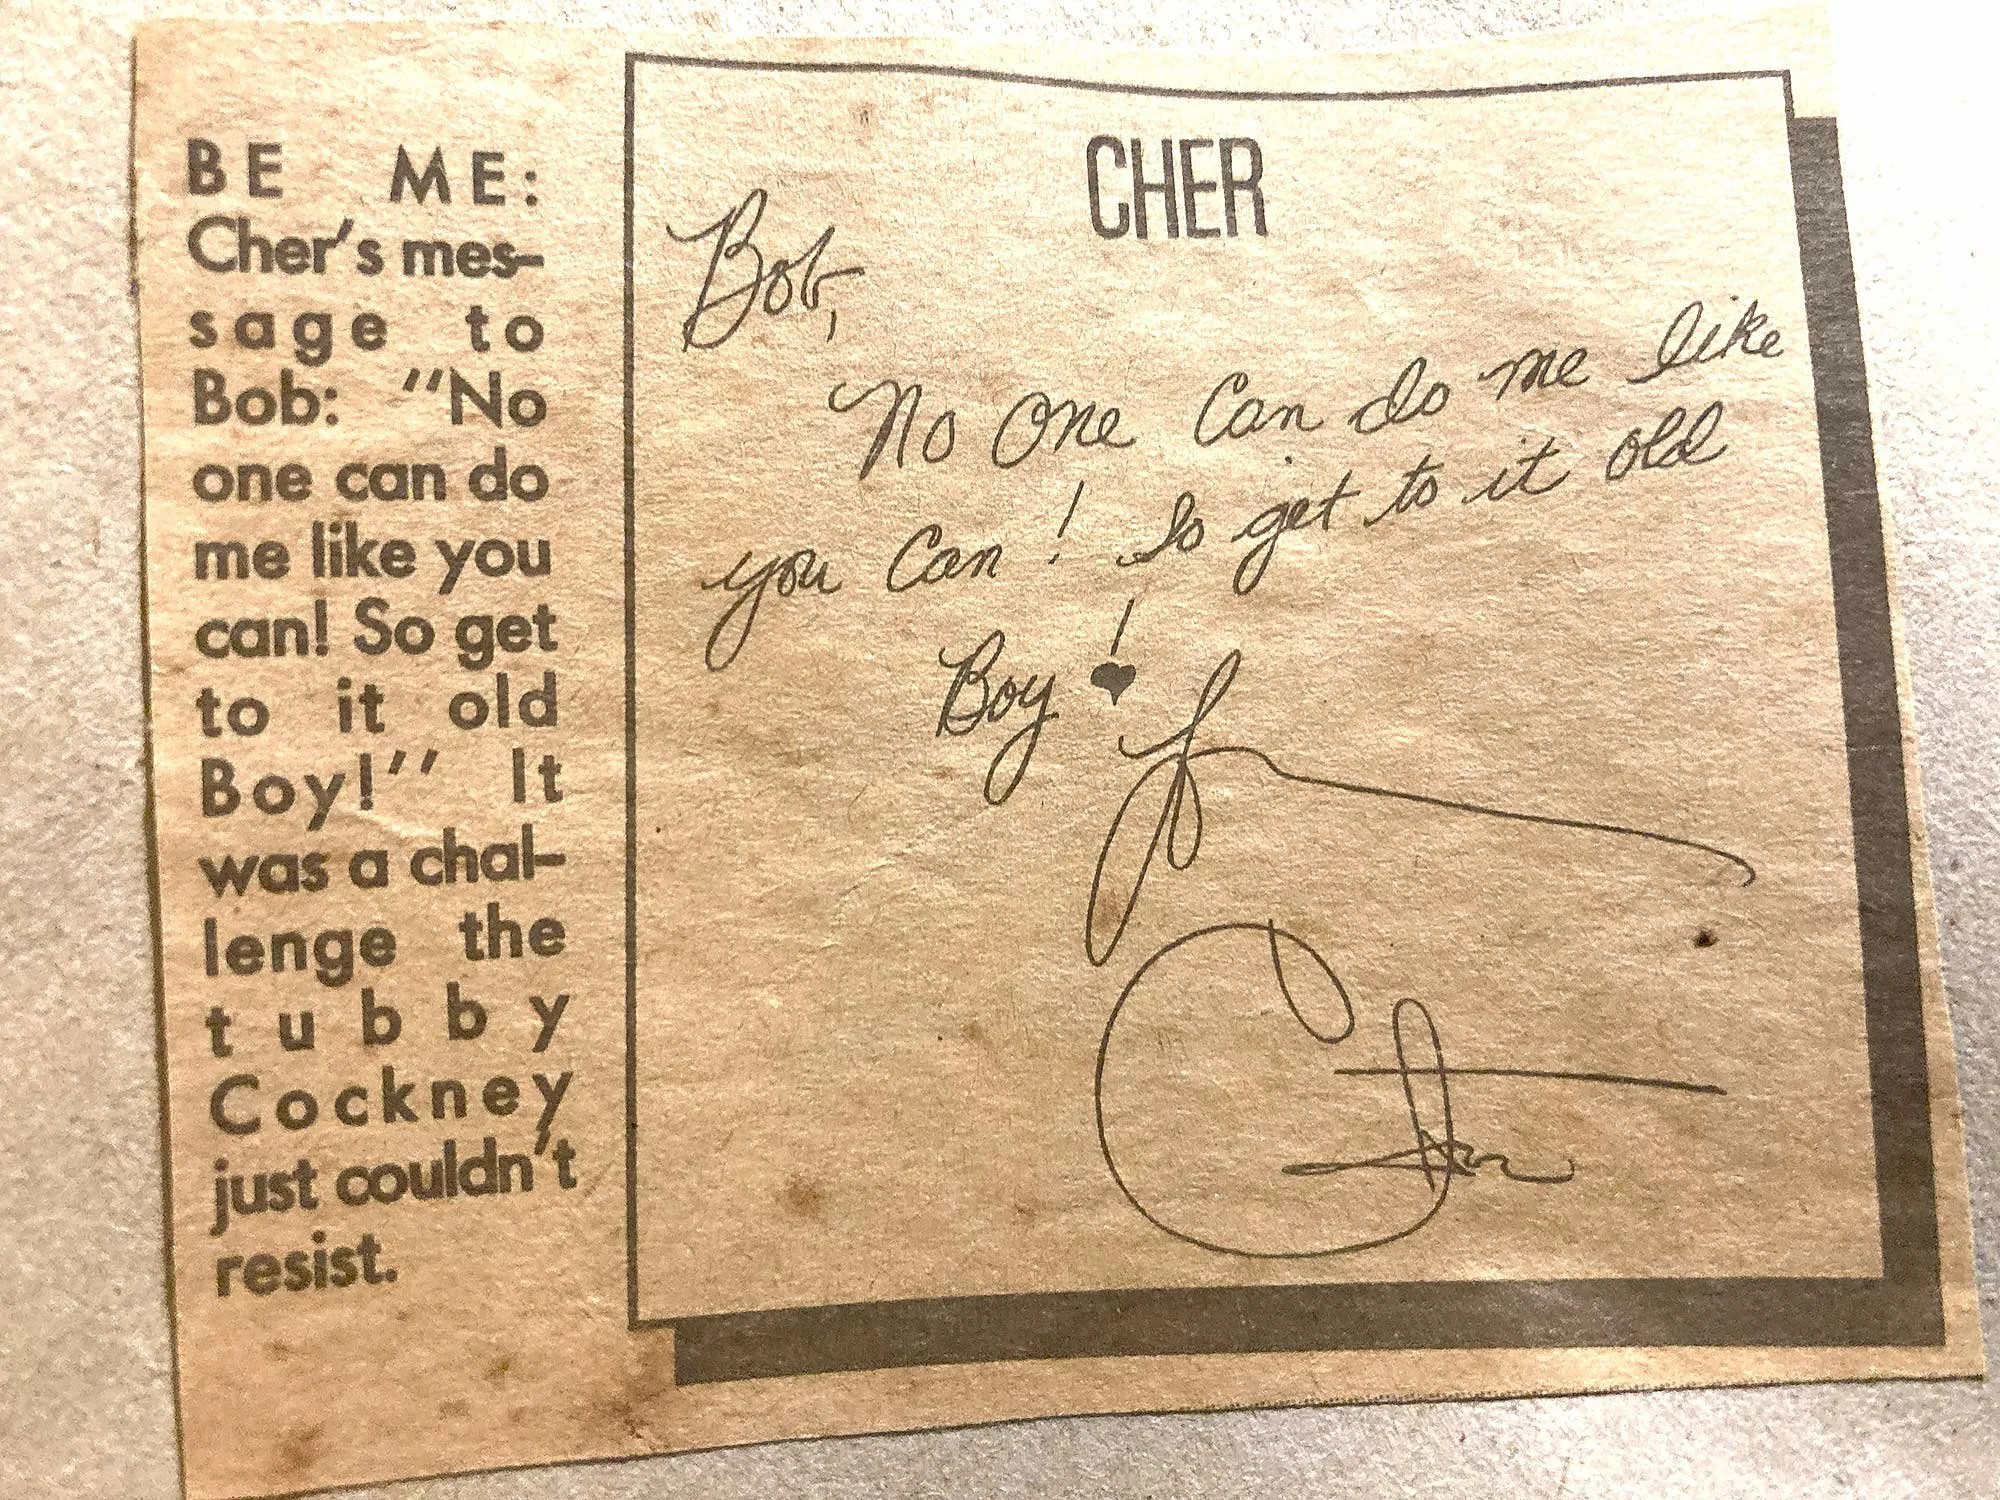 BE ME:
Cher's mes-
sage to
Bob: "No
one can do
me like you
can! So get
to it old
Boy!" It
was a chal-
lenge the
tubby
Cockney
just couldn't
resist.
CHER
Bob,
No one Can do me like
you Can! So get to it old
Boy!
Cher